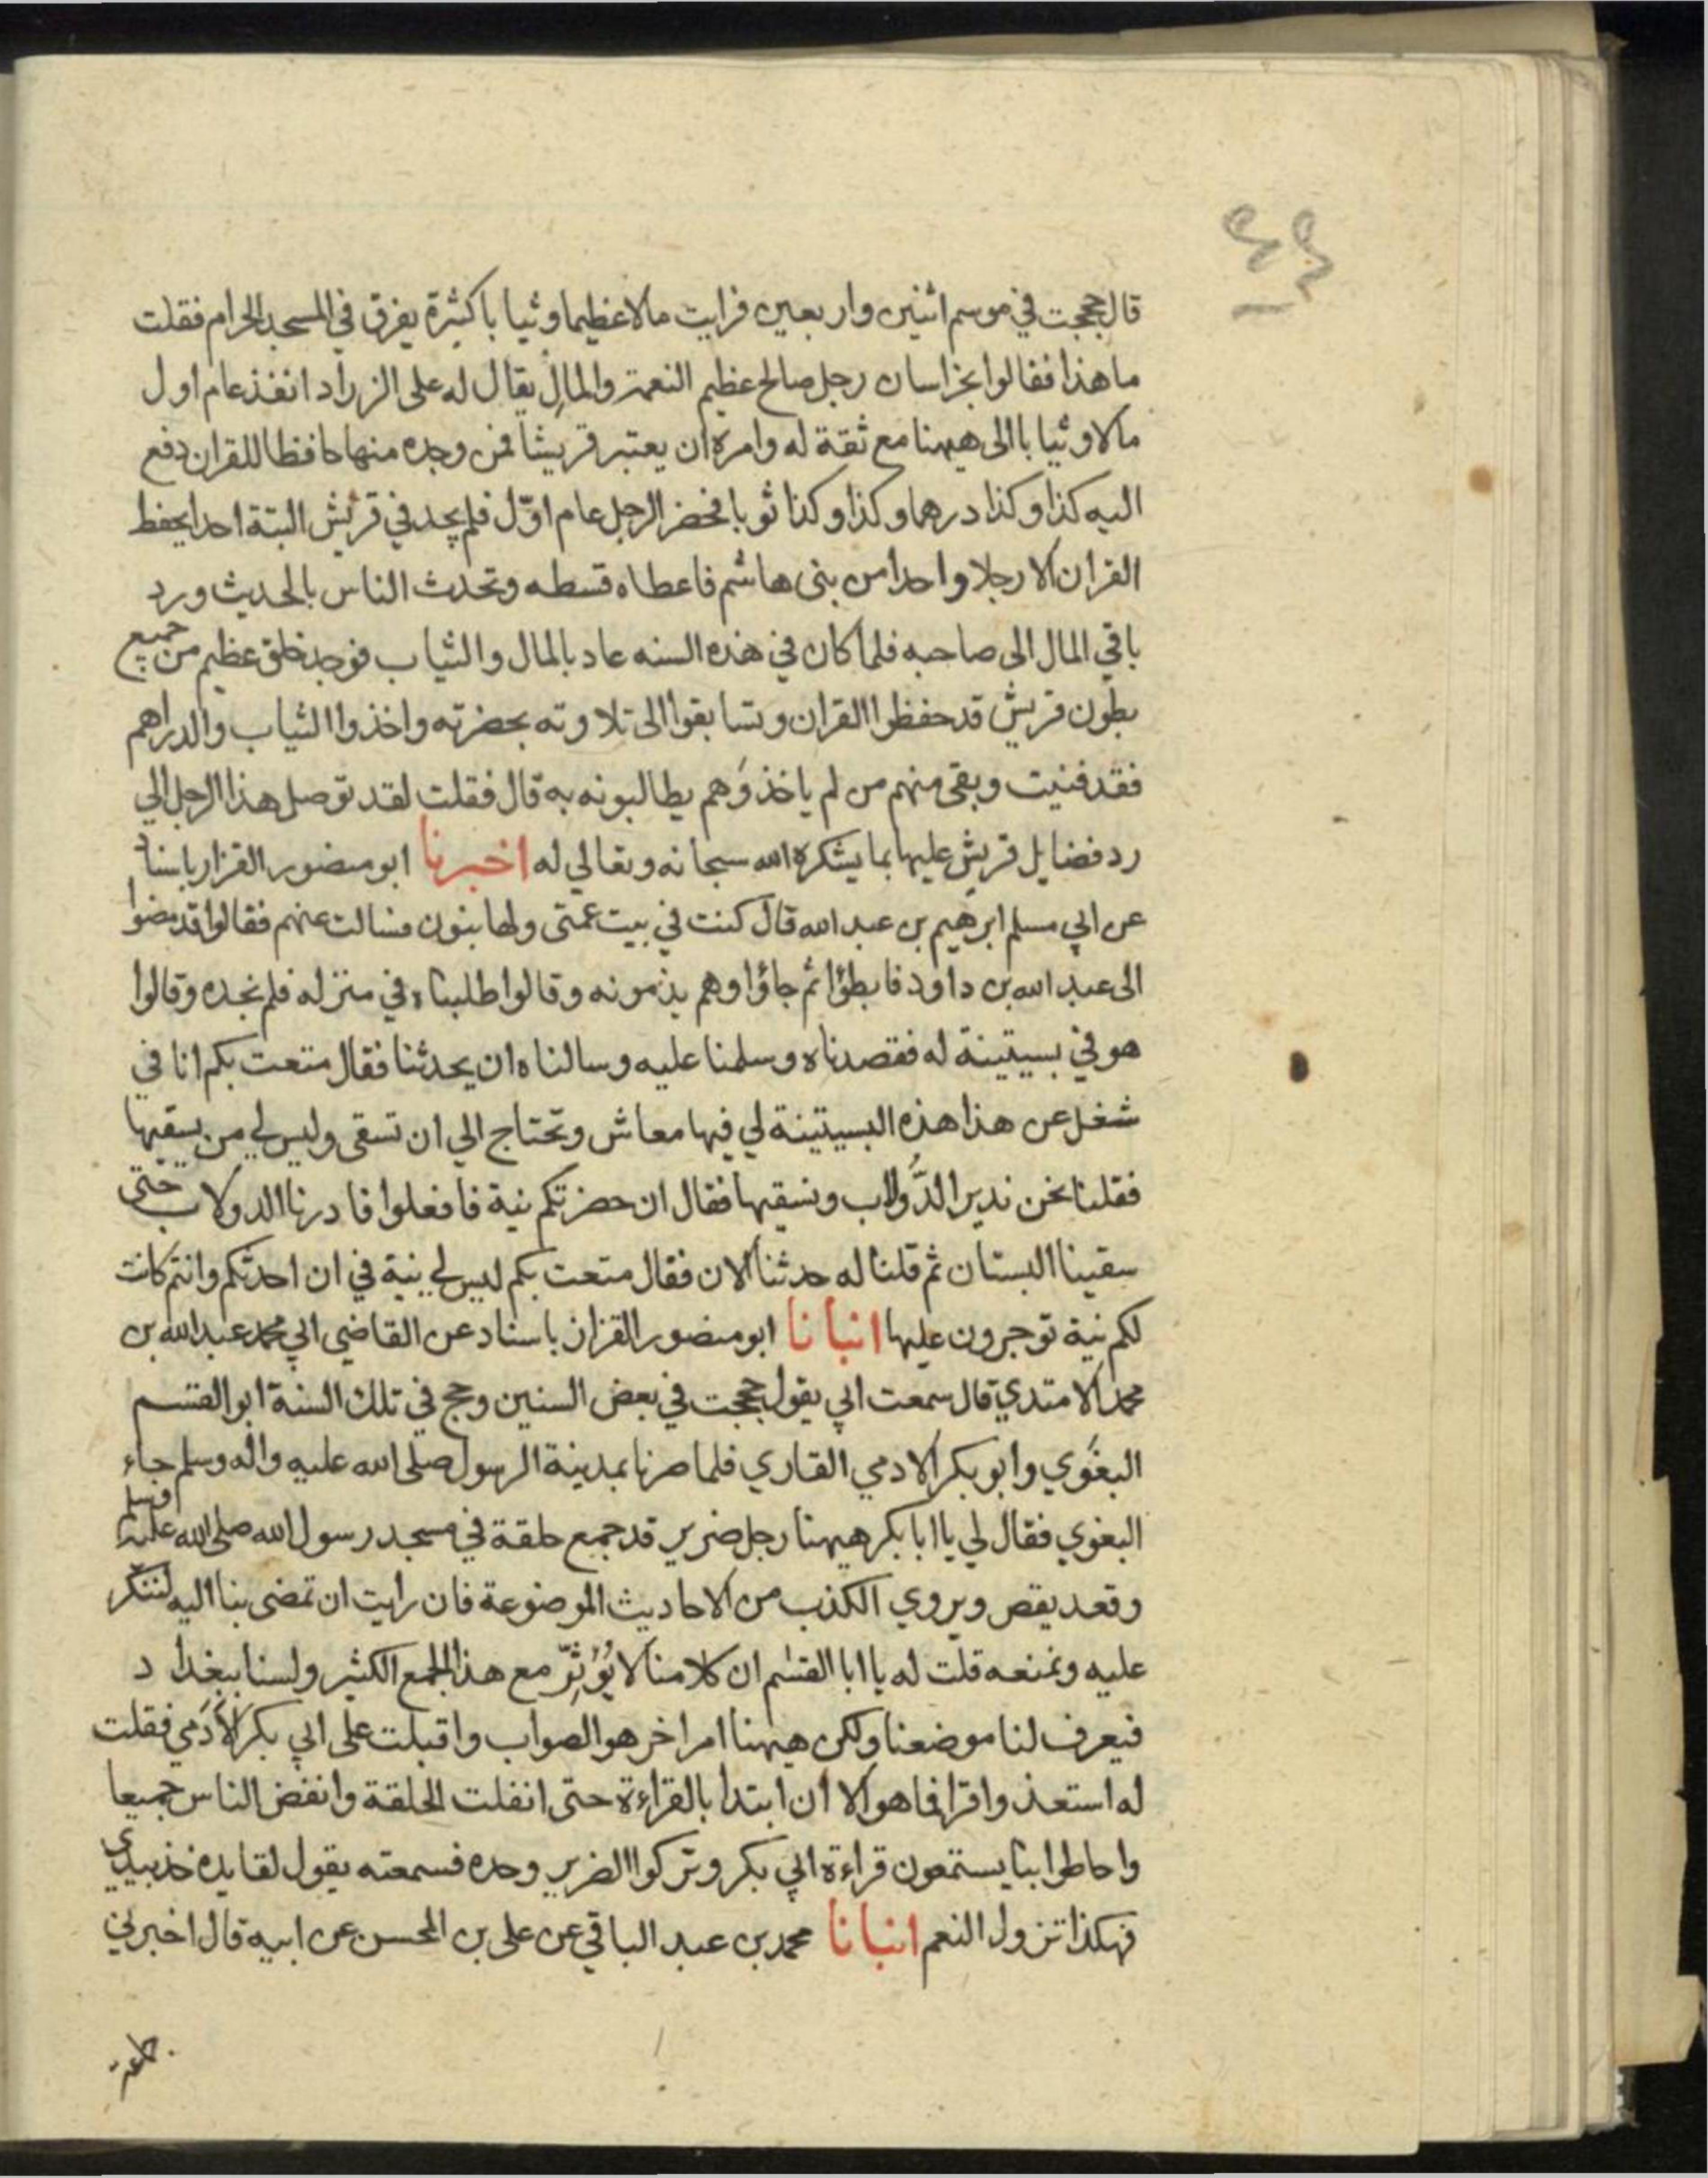 ٤٤
قال حججت في موسم اثنين واربعين فرايت مالا عظيما وثيابا كثيرة يفرق في المسجد الحرام فقلت
ما هذا فقالوا بخراسان رجل صالح عظيم النعمة والمال يقال له على الزراد انفذ عام اول
مالا وثيابا الى ههنا مع ثقة له وامره ان يعتبر قريشا فمن وجده منها حافظا للقران دفع
اليه كذا وكذا درهما وكذا وكذا ثوبا فحضر الرجل عام اوّل فلم يجد في قريش البتة احدا يحفظ
القران الا رجلا واحدا من بنى هاشم فاعطاه قسطه وتحدث الناس بالحديث ورد
باقي المال الى صاحبه فلما كان في هذه السنه عاد بالمال والثياب فوجد خلق عظيم من جميع
بطون قريش قد حفظوا القران وتسابقوا الى تلاوته بحضرته واخذوا الثياب والدراهم
فقد فنيت وبقى منهم من لم ياخذ وَهم يطالبونه به قال فقلت لقد توصل هذا الرجل الي
رد فضايل قريش عليها بما يشكره الله سبحانه وتعالي له اخبرنا ابو منصور القزاز باسناد
عن ابي مسلم ابرهيم بن عبد الله قال كنت في بيت عمتى ولها بنون فسالت عنهم فقالوا قد مضوا
الى عبد الله بن داود فابطؤا ثم جاؤا وهم يذمونه وقالوا طلبناه في منزله فلم نجده وقالوا
هو في بسيتينة له فقصدناه وسلمنا عليه وسالناه ان يحدثنا فقال متعت بكم انا في
شغل عن هذا هذه البسيتينة لي فيها معاش وتحتاج الي ان تسقى وليس لي من يسقيها
فقلنا نحن ندير الدَّولاب ونسقيها فقال ان حضرتكم نية فافعلوا فادرنا الدولاب حتى
سقينا البستان ثم قلنا له حدثنا الان فقال متعت بكم ليس لي نية في ان احدثكم وانتم كانت
لكم نية توجرون عليها انبانا ابو منصور القزاز باسناد عن القاضي ابي محمد عبد الله بن
محمد الامتدي قال سمعت ابي يقول حججت في بعض السنين وحج في تلك السنة ابو القسم
البغَوي وابو بكر الادمي القاري فلما صرنا بمدينة الرسول صلى الله عليه واله وسلم جاء
البغوي فقال لي يا ابا بكر ههنا رجل ضرير قد جمع حلقة في مسجد رسول الله صلى الله عليه وسلم
وقعد يقص ويروي الكذب من الاحاديث الموضوعة فان رايت ان تمضى بنا اليه لننكر
عليه ونمنعه قلت له يا ابا القسم ان كلامنا لا يُؤثِرّ مع هذا الجمع الكثير ولسنا ببغداد
فيعرف لنا موضعنا ولكن ههنا امرا خر هو الصواب واقبلت على ابي بكر الاَدَمي فقلت
له استعذ واقرا فما هو الا ان ابتدا بالقراءة حتى انفلت الحلقة وانفض الناس جميعا
واحاطوا بنا يستمعون قراءة ابي بكر وتركوا الضرير وحده فسمعته يقول لقايده خذ بيدي
فهكذا تزول النعم انبانا محمد بن عبد الباقي عن على بن المحسن عن ابيه قال اخبرني